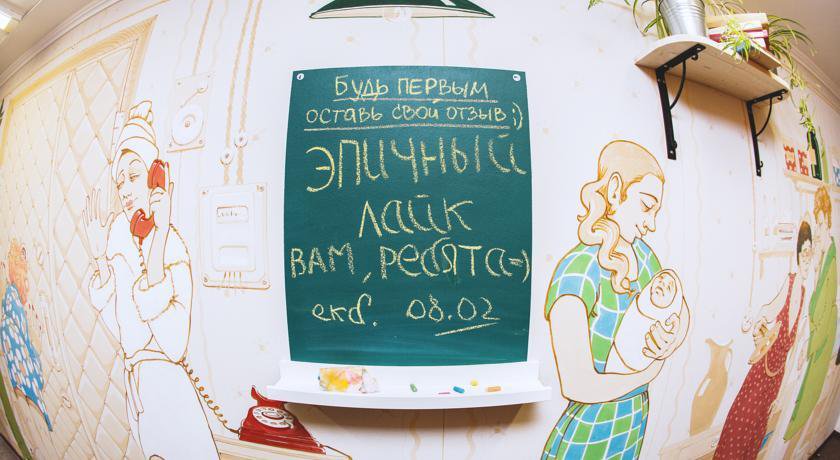 Будь ПЕРВЫМ
оставь свой отзыв ;)
ЭПИЧНЫЙ
ЛАЙК
ВАМ, РЕБЯТА=)
екб. 08.02